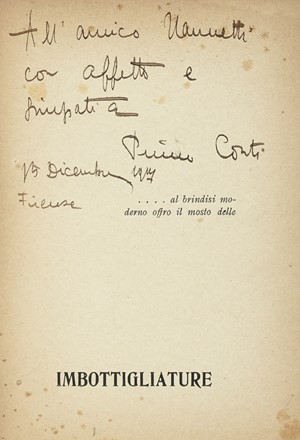 All'amico Nannetti
con affetto e
simpatia
Primo Conti
15 Dicembre 1917
Firenze
. . . . al brindisi mo-
derno offro il mosto delle
IMBOTTIGLIATURE